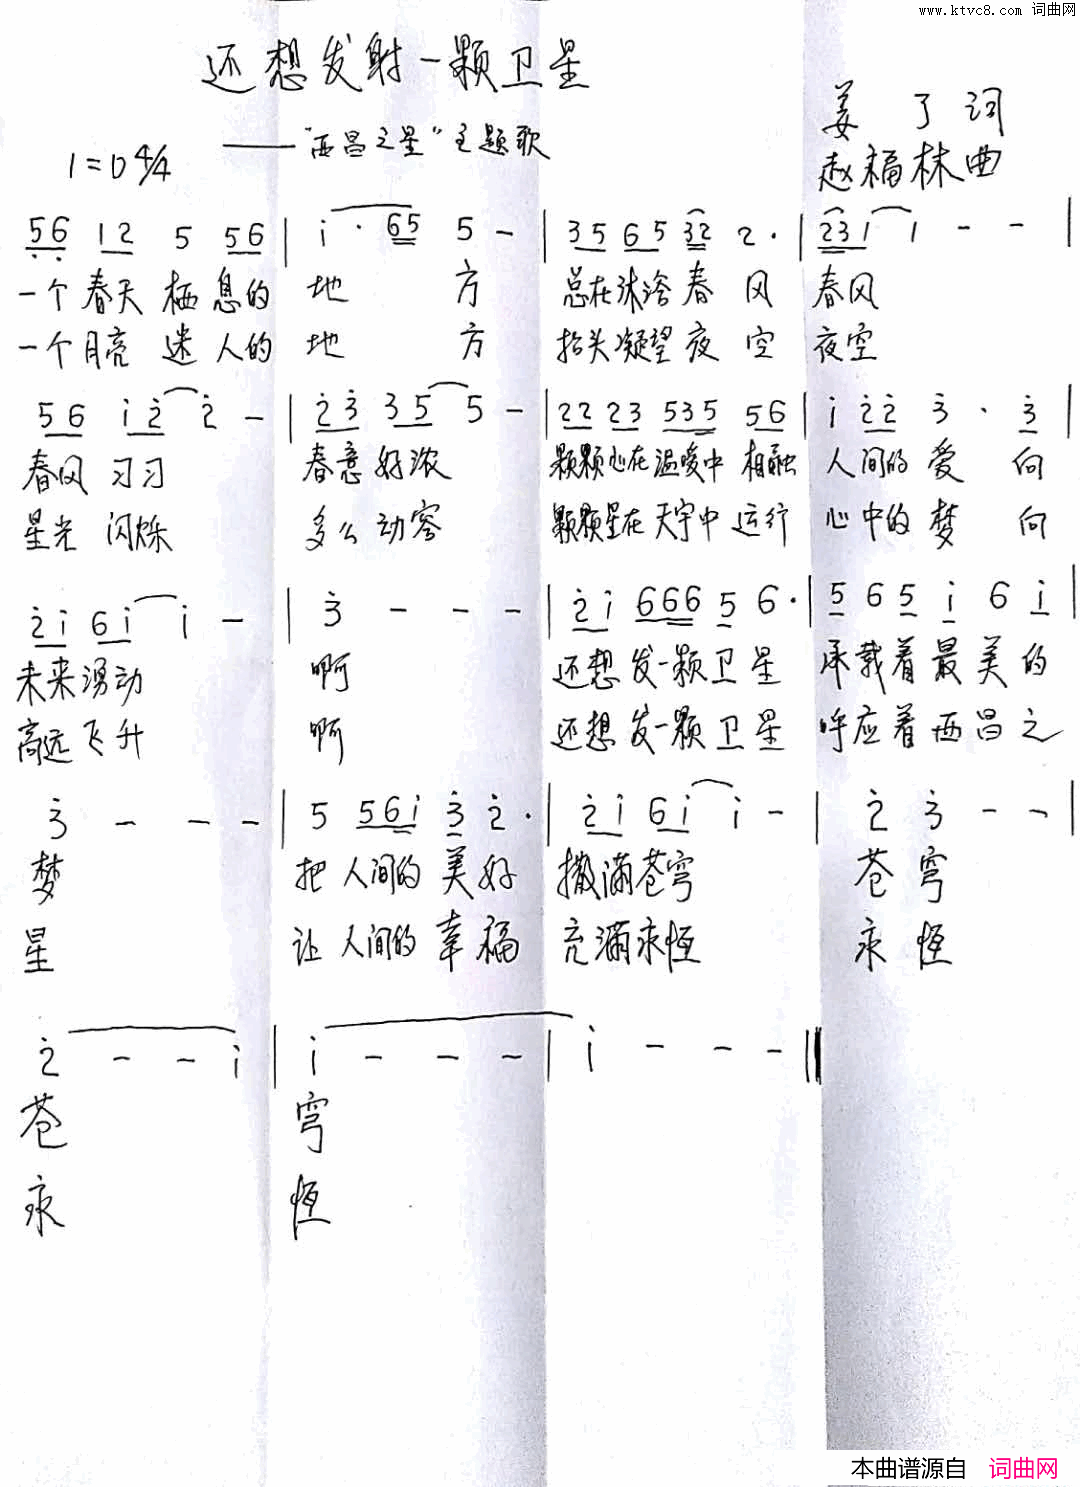 www.ktvc8.com 词曲网
还想发射一颗卫星
姜了词
——"西昌之星"主题歌
1=D 4/4
赵福林曲
56 12 5 56 | i · 65 5 - | 35 65 32 2 · | 231 1 - - |
一个春天栖息的 地 方 总在沐浴春风 春风
一个月亮迷人的 地 方 抬头凝望夜空 夜空
56 i2 2 - | 23 35 5 - | 22 23 535 56 | i 22 3 · 3 |
春风习习 春意好浓 颗颗心在温暖中相融 人间的爱 向
星光闪烁 多么动容 颗颗星在天宇中运行 心中的梦 向
2i 6i i - | 3 - - - | 2i 666 5 6 · | 5 6 5 i 6 i |
未来涌动 啊 还想发一颗卫星 承载着最美的
高远飞升 啊 还想发一颗卫星 呼应着西昌之
3 - - - | 5 56i 3 2 · | 2i 6i i - | 2 3 - - |
梦 把人间的美好 撒满苍穹 苍穹
星 让人间的幸福 充满永恒 永恒
2 - - i | i - - - | i - - - ‖
苍 穹
永 恒
本曲谱源自 词曲网